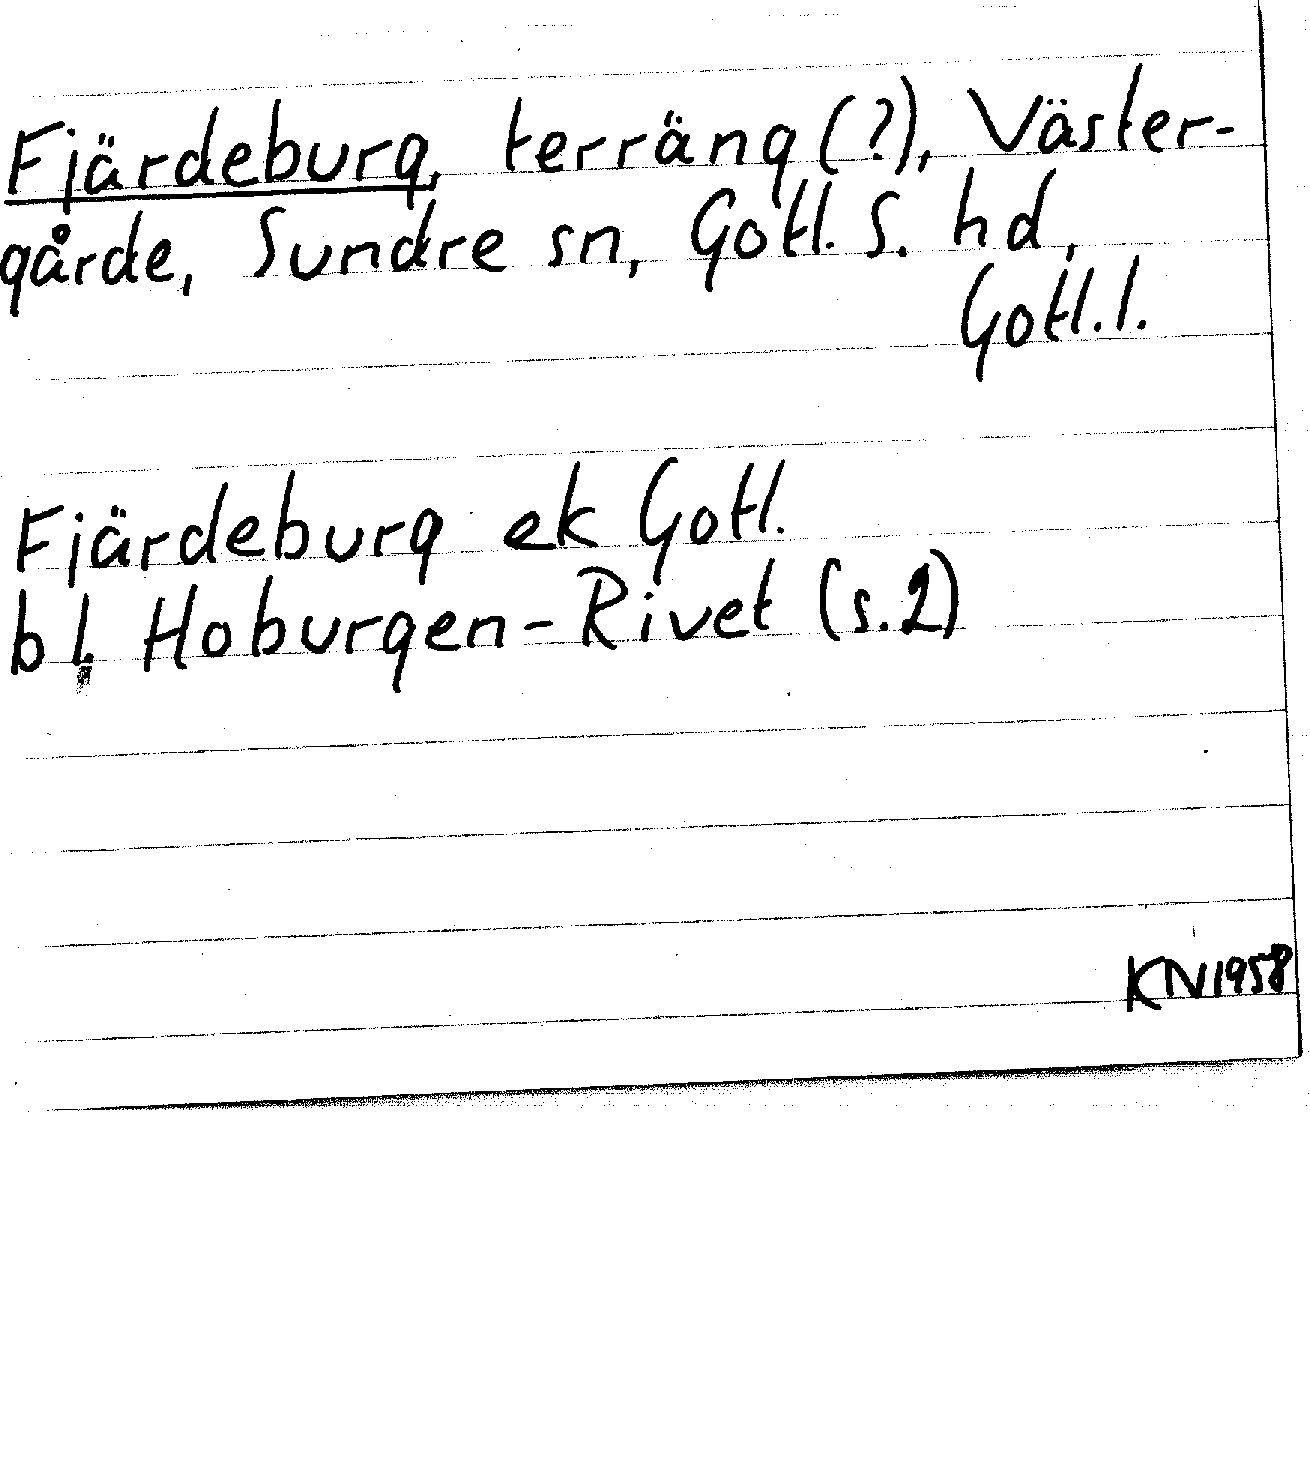 Fjärdeburg, terräng (?), Väster-
gårde, Sundre sn, Gotl. S. hd,
Gotl. l.
Fjärdeburg ek Gotl.
bl. Hoburgen-Rivet (s.2)
KN 1958